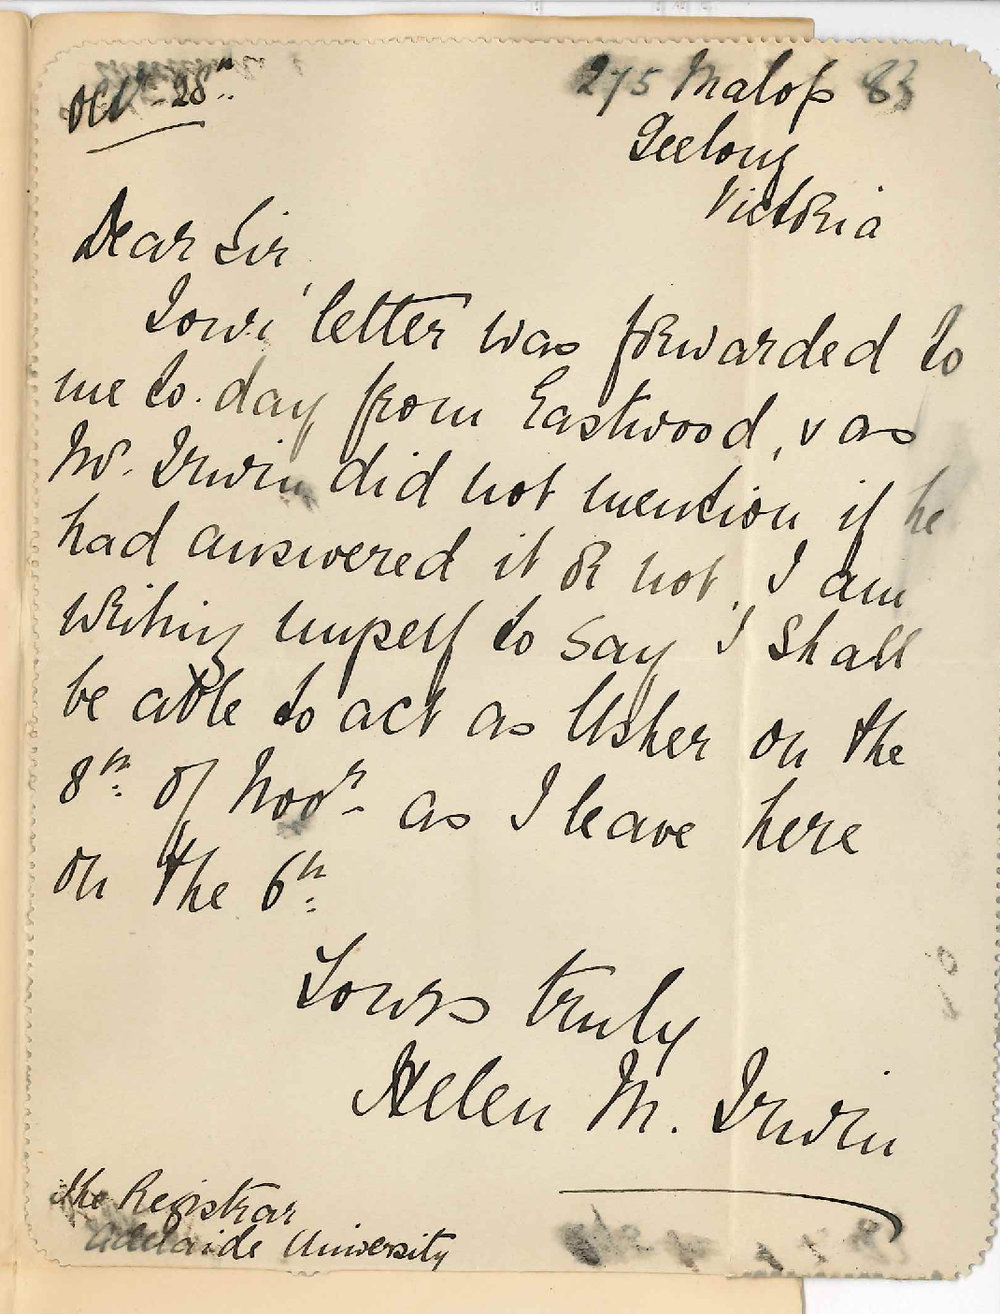 Octr 28th
275 Malop St
Geelong
Victoria
Dear Sir
Your letter was forwarded to
me to-day from Eastwood, & as
Mr. Irwin did not mention if he
had answered it or not, I am
writing myself to say I shall
be able to act as Usher on the
8th of Novr as I leave here
on the 6th.
Yours truly
Helen M. Irwin
The Registrar
Adelaide University